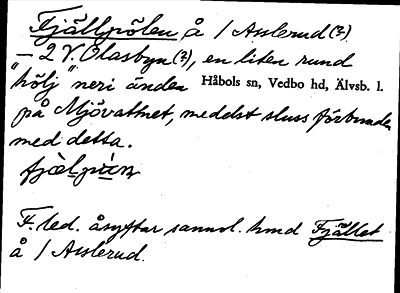 Fjällpölen å 1 Asslerud (?)
– 2 V. Olasbyn (?), en liten rund
"hölj" neri ändan Håbols sn, Vedbo hd, Älvsb. l.
på Mjövattnet, medelst sluss förbunden
med detta.
F.led. åsyftar sannol. hmd Fjället
å 1 Asslerud.